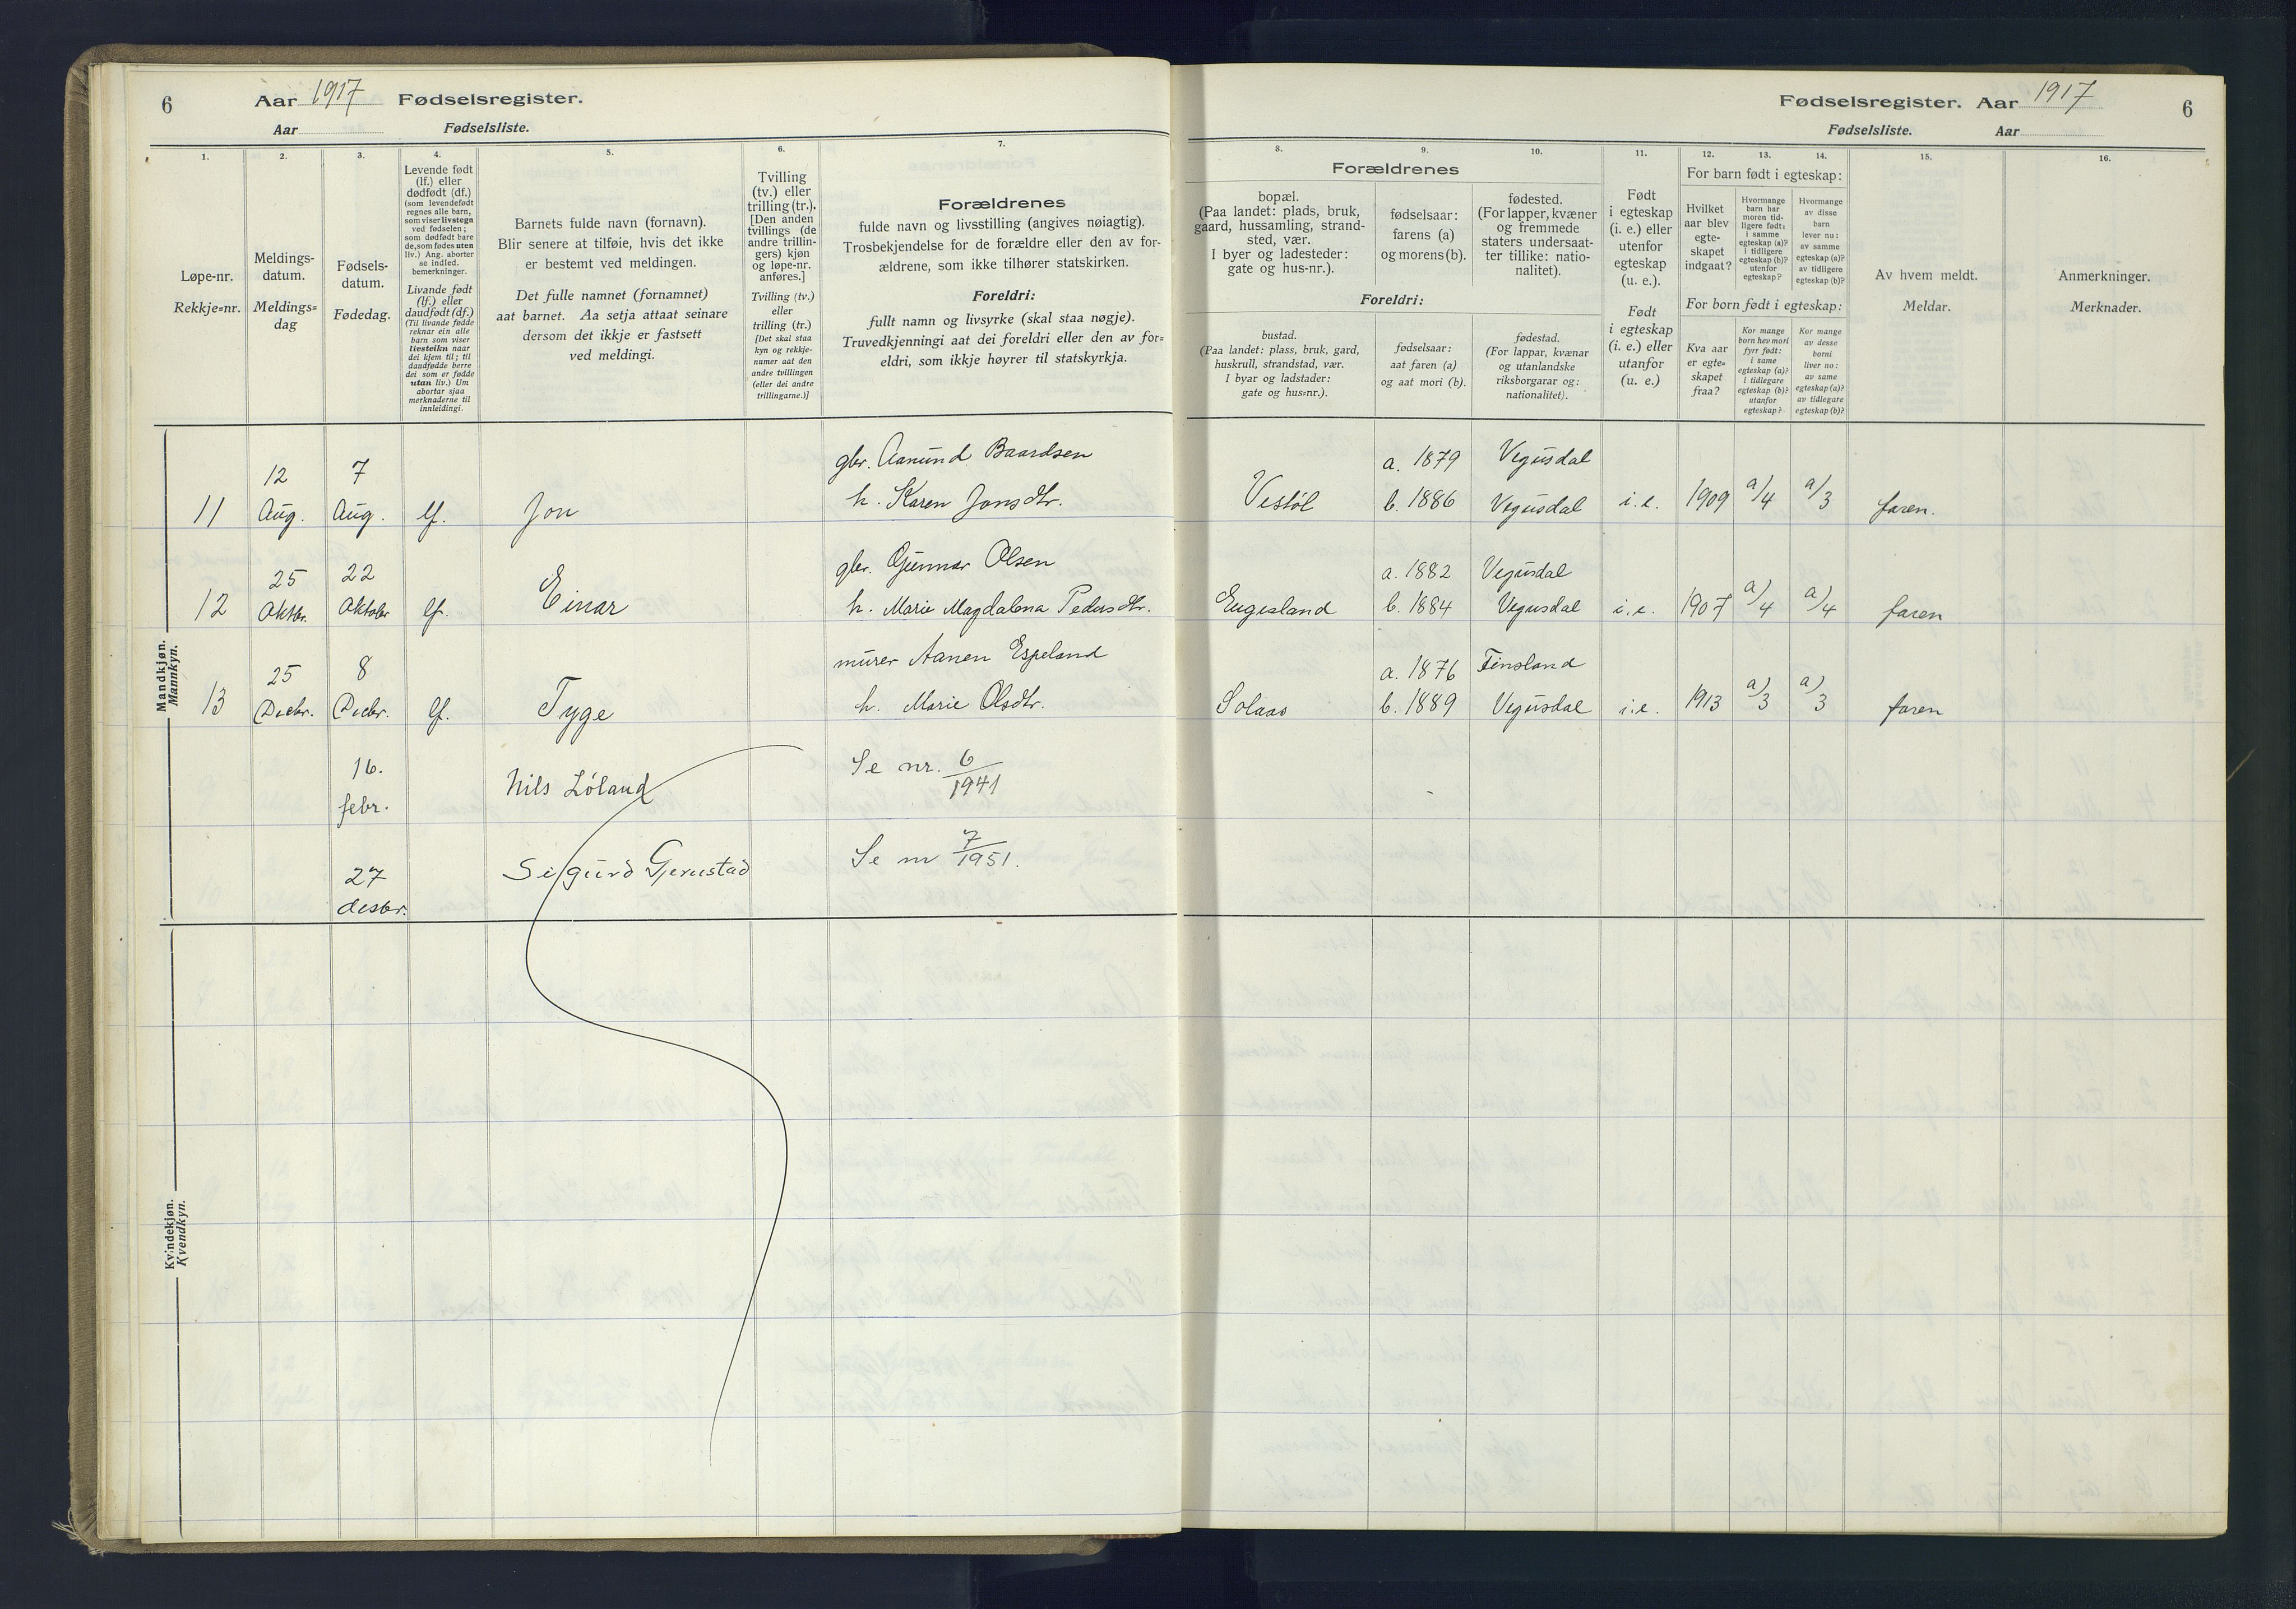 6 Aar 1917 Fødselsregister.
Aar Fødselsliste.
1. 2. 3. 4. 5. 6. 7.
Løpe-nr.
Rekkje=nr.
Meldings-
datum.
Meldings=
dag
Fødsels-
datum.
Fødedag.
Levende født
(lf.) eller
dødfødt (df.)
(som levendefødt
regnes alle barn,
som viser livstegn
ved fødselen;
som dødfødt bare
de, som fødes uten
liv.) Ang. aborter
se indled.
bemerkninger.
Livande født
(lf.) eller
daudfødt (df.)
(Til livande fødde
reknar ein alle
barn som viser
livsteikn naar
dei kjem til; til
daudfødde berre
dei som er fødde
utan liv.) Um
abortar sjaa
merknaderne til
innleidingi.
Barnets fulde navn (fornavn).
Blir senere at tilføie, hvis det ikke
er bestemt ved meldingen.
Det fulle namnet (fornamnet)
aat barnet. Aa setja attaat seinare
dersom det ikkje er fastsett
ved meldingi.
Tvilling
(tv.) eller
trilling (tr.).
[Den anden
tvillings (de
andre trillin-
gers) kjøn
og løpe-nr.
anføres.]
Tvilling (tv.)
eller
trilling (tr.)
[Det skal staa
kyn og rekkje-
numer aat den
andre tvillingen
(eller dei andre
trillingarne.)]
Forældrenes
fulde navn og livsstilling (angives nøiagtig).
Trosbekjendelse for de forældre eller den av for-
ældrene, som ikke tilhører statskirken.
Foreldri:
fullt namn og livsyrke (skal staa nøgje).
Truvedkjenningi aat dei foreldri eller den av for=
eldri, som ikkje høyrer til statskyrkja.
Mandkjøn.
Mannkyn.
gbr. Aanund Baardsen
12 7
11 Aug. Aug. lf. Jon h. Karen Jonsdtr.
gbr. Gunnar Olsen
25 22
12 Oktbr. Oktober lf. Einar h. Marie Magdalena Pedersdtr.
murer Aanen Espeland
25 8
13 Decbr. Decbr. lf. Tyge h. Marie Olsdtr.
16. Nils Løland Se nr. 6/1941
febr.
27 Sigurd Gjerustad Se nr 7/1951.
desbr.
Kvindekjøn.
Kvendkyn.
Fødselsregister. Aar 1917 6
Fødselsliste. Aar
8. 9. 10. 11. 12. 13. 14. 15. 16.
Forældrenes
bopæl.
(Paa landet: plads, bruk,
gaard, hussamling, strand-
sted, vær.
I byer og ladesteder:
gate og hus-nr.).
fødselsaar:
farens (a)
og morens (b).
fødested.
(For lapper, kvæner
og fremmede
staters undersaat-
ter tillike: natio-
nalitet).
Foreldri:
bustad.
(Paa landet: plass, bruk, gard,
huskrull, strandstad, vær.
I byar og ladstader:
gate og hus=nr.).
fødselsaar:
aat faren (a)
og aat mori (b).
fødestad.
(For lappar, kvænar
og utanlandske
riksborgarar og:
nationalitet).
Født
i egteskap
(i. e.) eller
utenfor
egteskap
(u. e.).
Født
i egteskap
(i. e.) eller
utanfor
(u. e.)
For barn født i egteskap:
Hvilket
aar blev
egte-
skapet
indgaat?
Hvormange
barn har
moren tid-
ligere født:
i samme
egteskap (a)?
i tidligere
egteskap (b)?
utenfor
egteskap?
Hvormange
av disse
barn
lever nu:
av samme
egteskap (a)?
av tidligere
egteskap (b)?
For born født i egteskap:
Kva aar
er egte=
skapet
fraa?
Kor mange
born hev mori
fyrr født:
i same
egteskap (a)?
i tidlegare
egteskap (b)?
utanfor
egteskap?
Kor mange
av desse
borni
liver no:
av same
egteskap (a)?
av tidlegare
egteskap (b)?
Av hvem meldt.
Meldar.
Anmerkninger.
Merknader.
a. 1879 Vegusdal
Vestøl b. 1886 Vegusdal i.e. 1909 a/4 a/3 faren.
a. 1882 Vegusdal
Eugesland b. 1884 Vegusdal i.e. 1907 a/4 a/4 faren
a. 1876 Finsland
Solaas b. 1889 Vegusdal i.e. 1913 a) 3 a) 3 faren